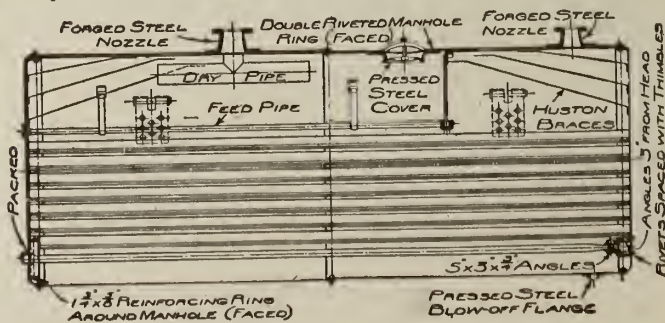 FORGED STEEL
NOZZLE
DOUBLE RIVETED MANHOLE
RING (FACED)
FORGED STEEL
NOZZLE
DRY PIPE
PRESSED
STEEL
COVER
FEED PIPE
HUSTON
BRACES
PACKED
ANGLES 3" FROM HEAD
RIVETS SPACED WITH THIMBLES
5"X3"X3/4" ANGLES
REINFORCING RING
AROUND MANHOLE (FACED)
PRESSED STEEL
BLOW-OFF FLANGE